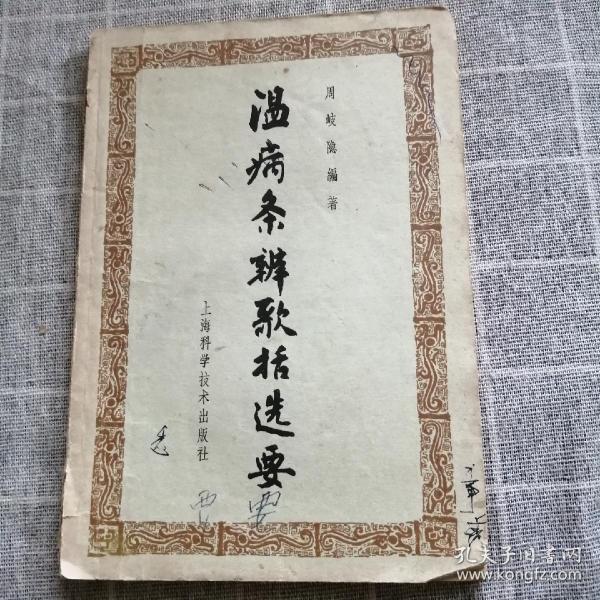 周岐隐编著
温病条辨歌括选要
上海科学技术出版社
孔夫子旧书网
www.kongfz.com